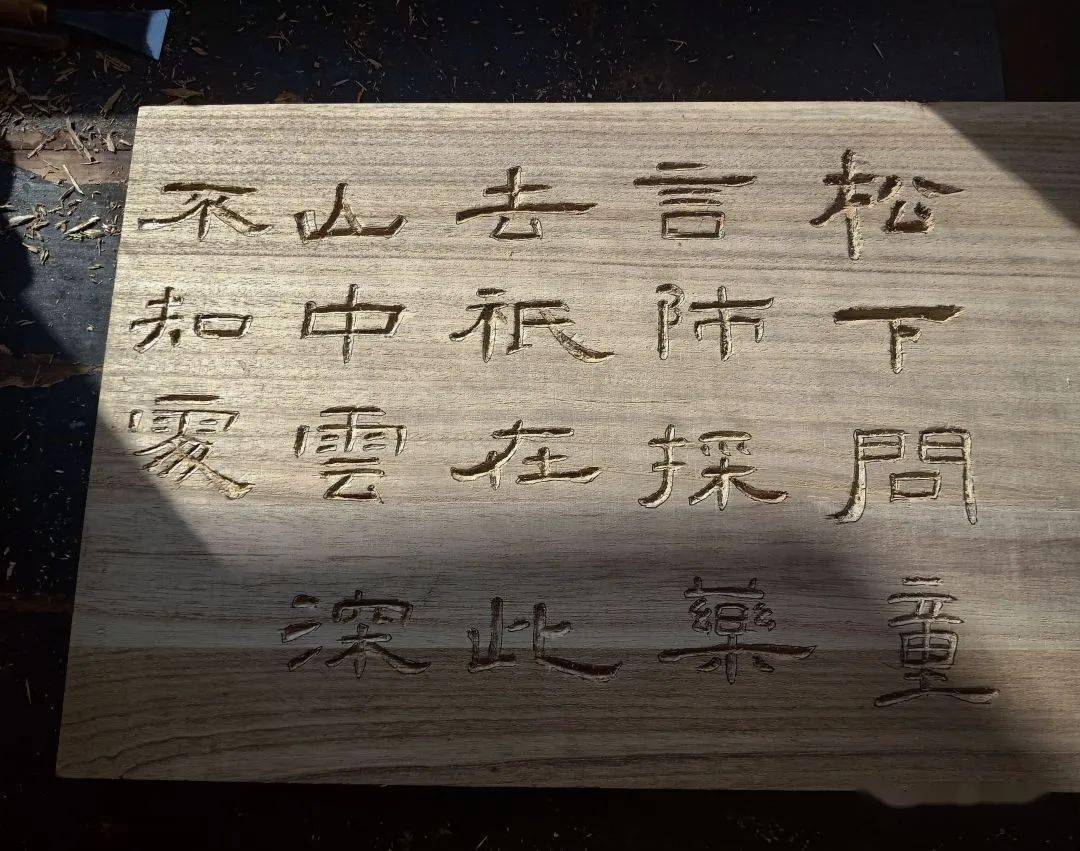 松下問童
言師採藥
去祇在此
山中雲深
不知處